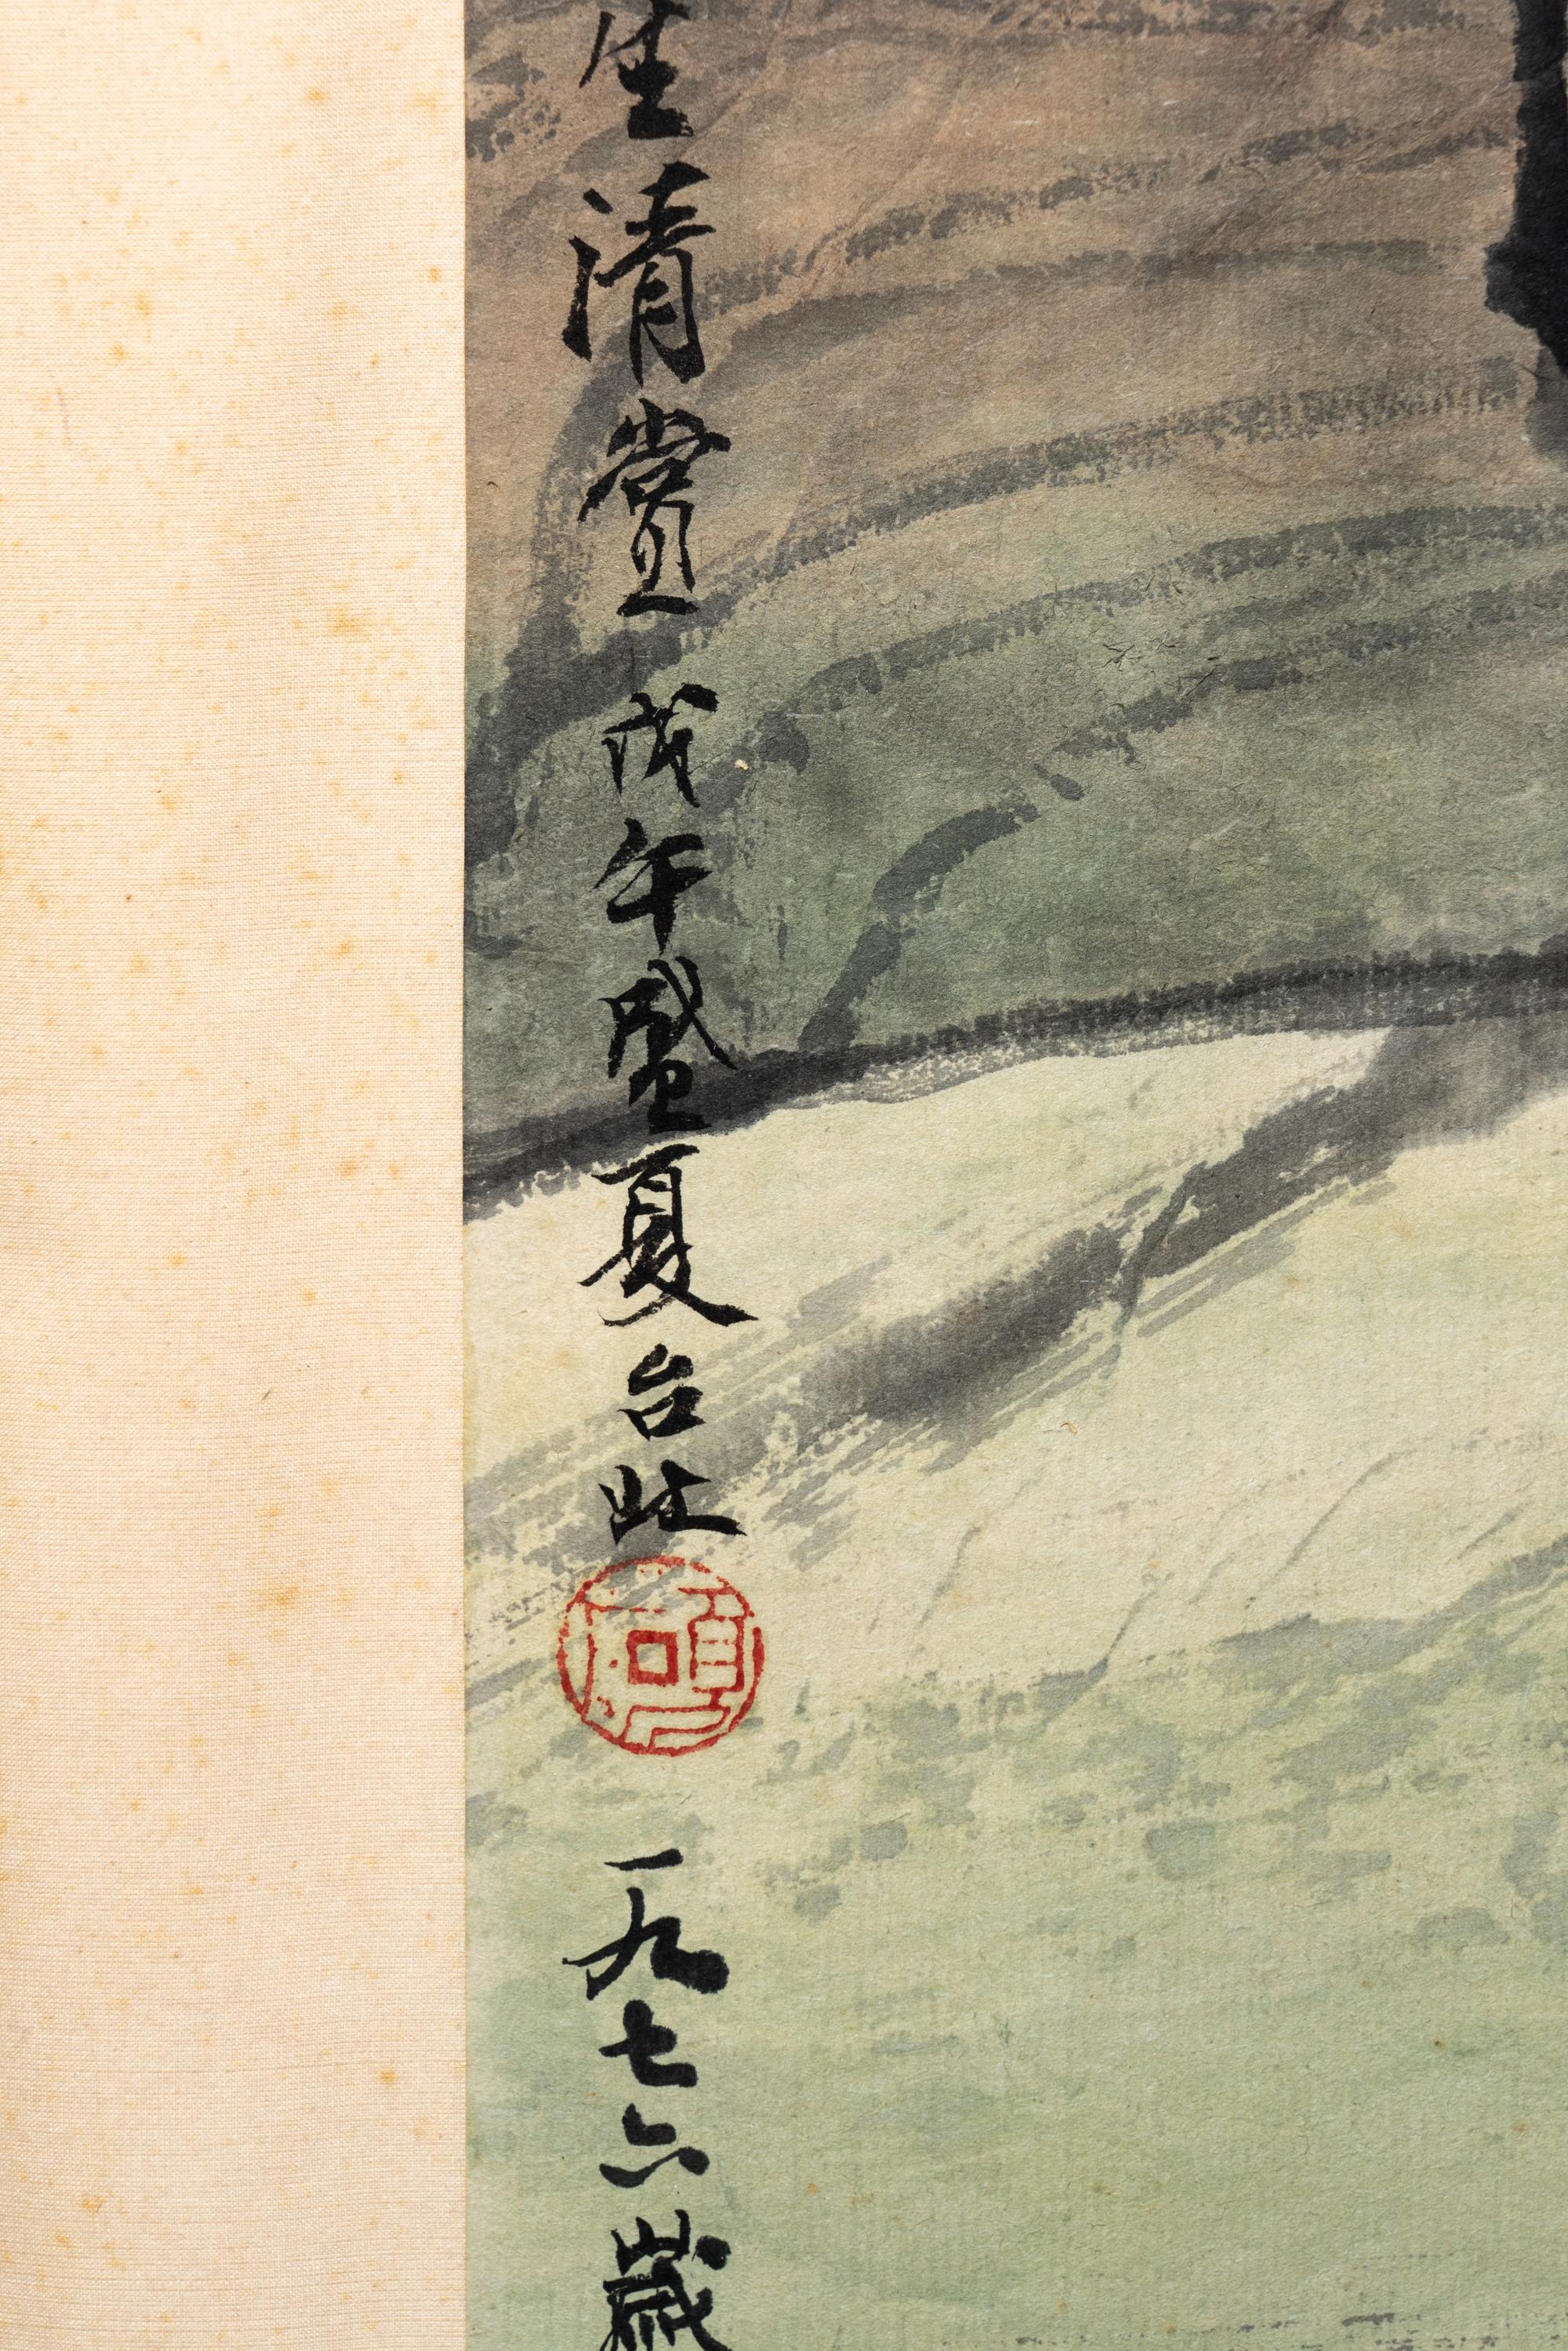 生清賞戊午盛夏台旺
一九七六歲